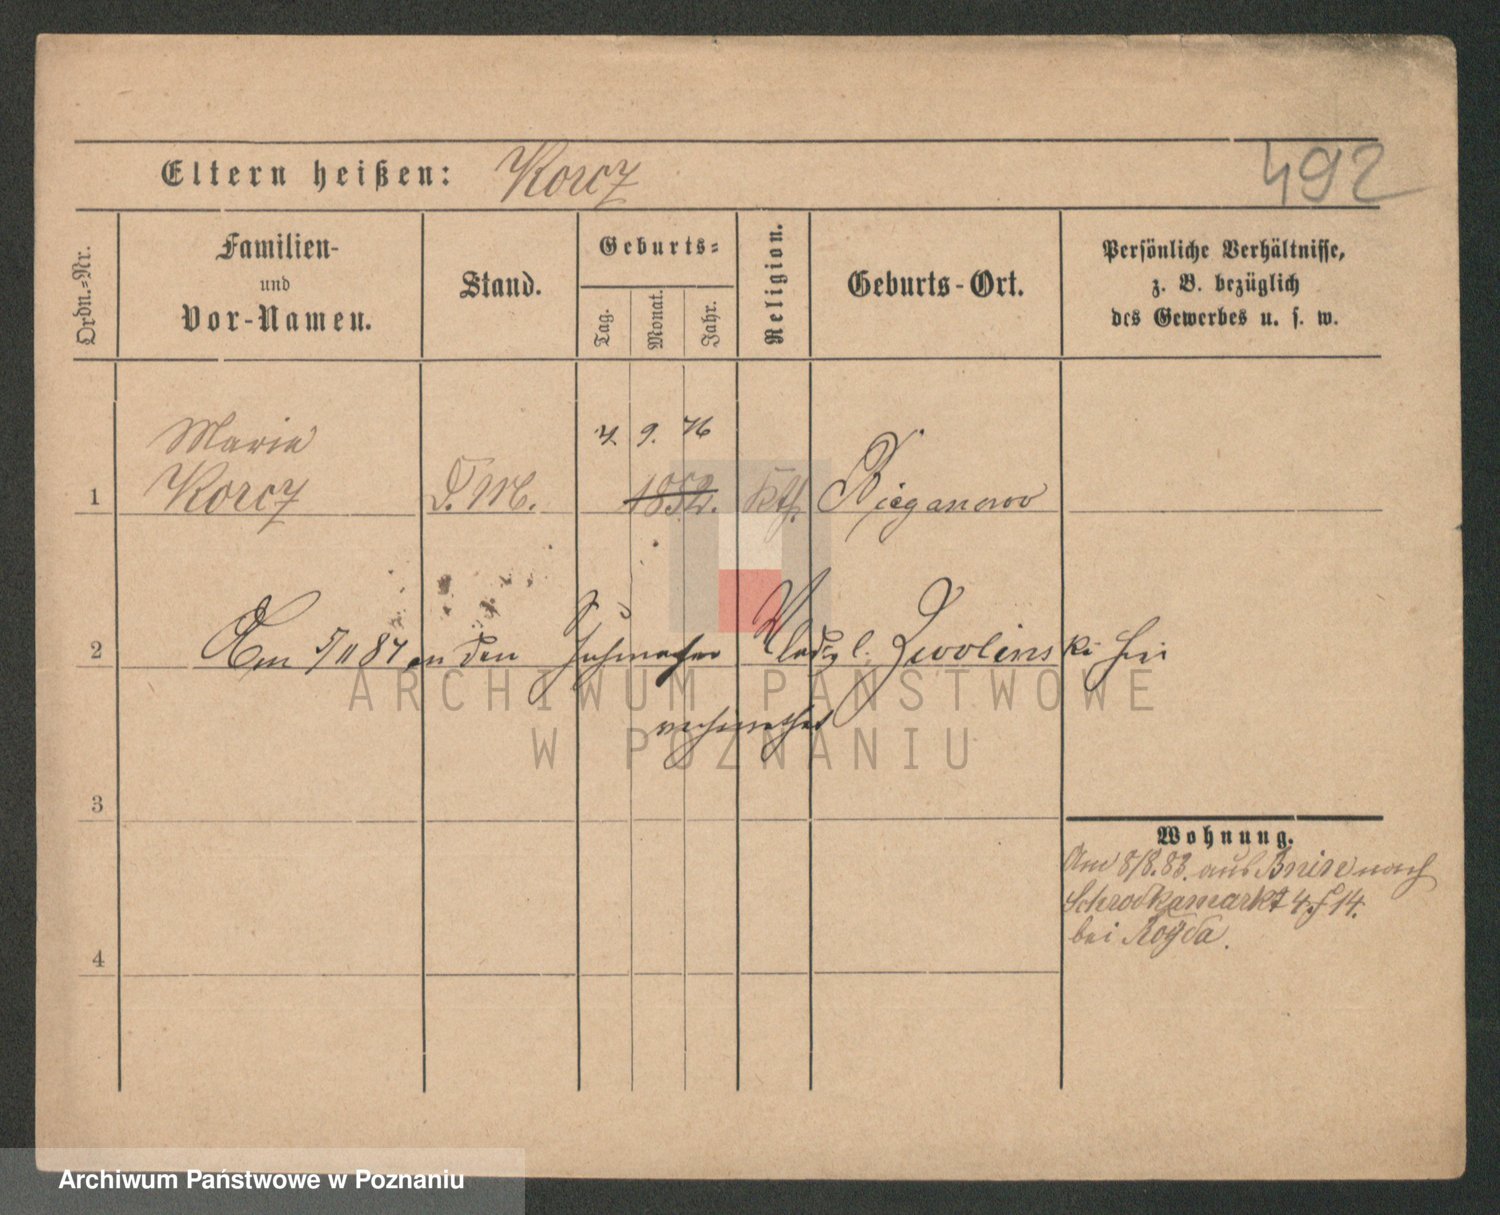 492
Eltern heißen: Korcz
Ordn.=Nr.
Familien-
und
Vor-Namen.
Stand.
Geburts=
Tag.
Monat.
Jahr.
Religion.
Geburts-Ort.
Persönliche Verhältnisse,
z. B. bezüglich
des Gewerbes u. s. w.
Maria
9. 76
1 Korcz D. M. 1852. kth. Bieganowo
2 Am 5/11 84 an den Schuhmacher Zwolinski hier
ARCHIWUM PAŃSTWOWE
verheirathet
W POZNANIU
3
Wohnung.
Am 8/8.83. aus Bnin nach
Schrodkamarkt 4. f 14.
bei Rogda.
4
Archiwum Państwowe w Poznaniu